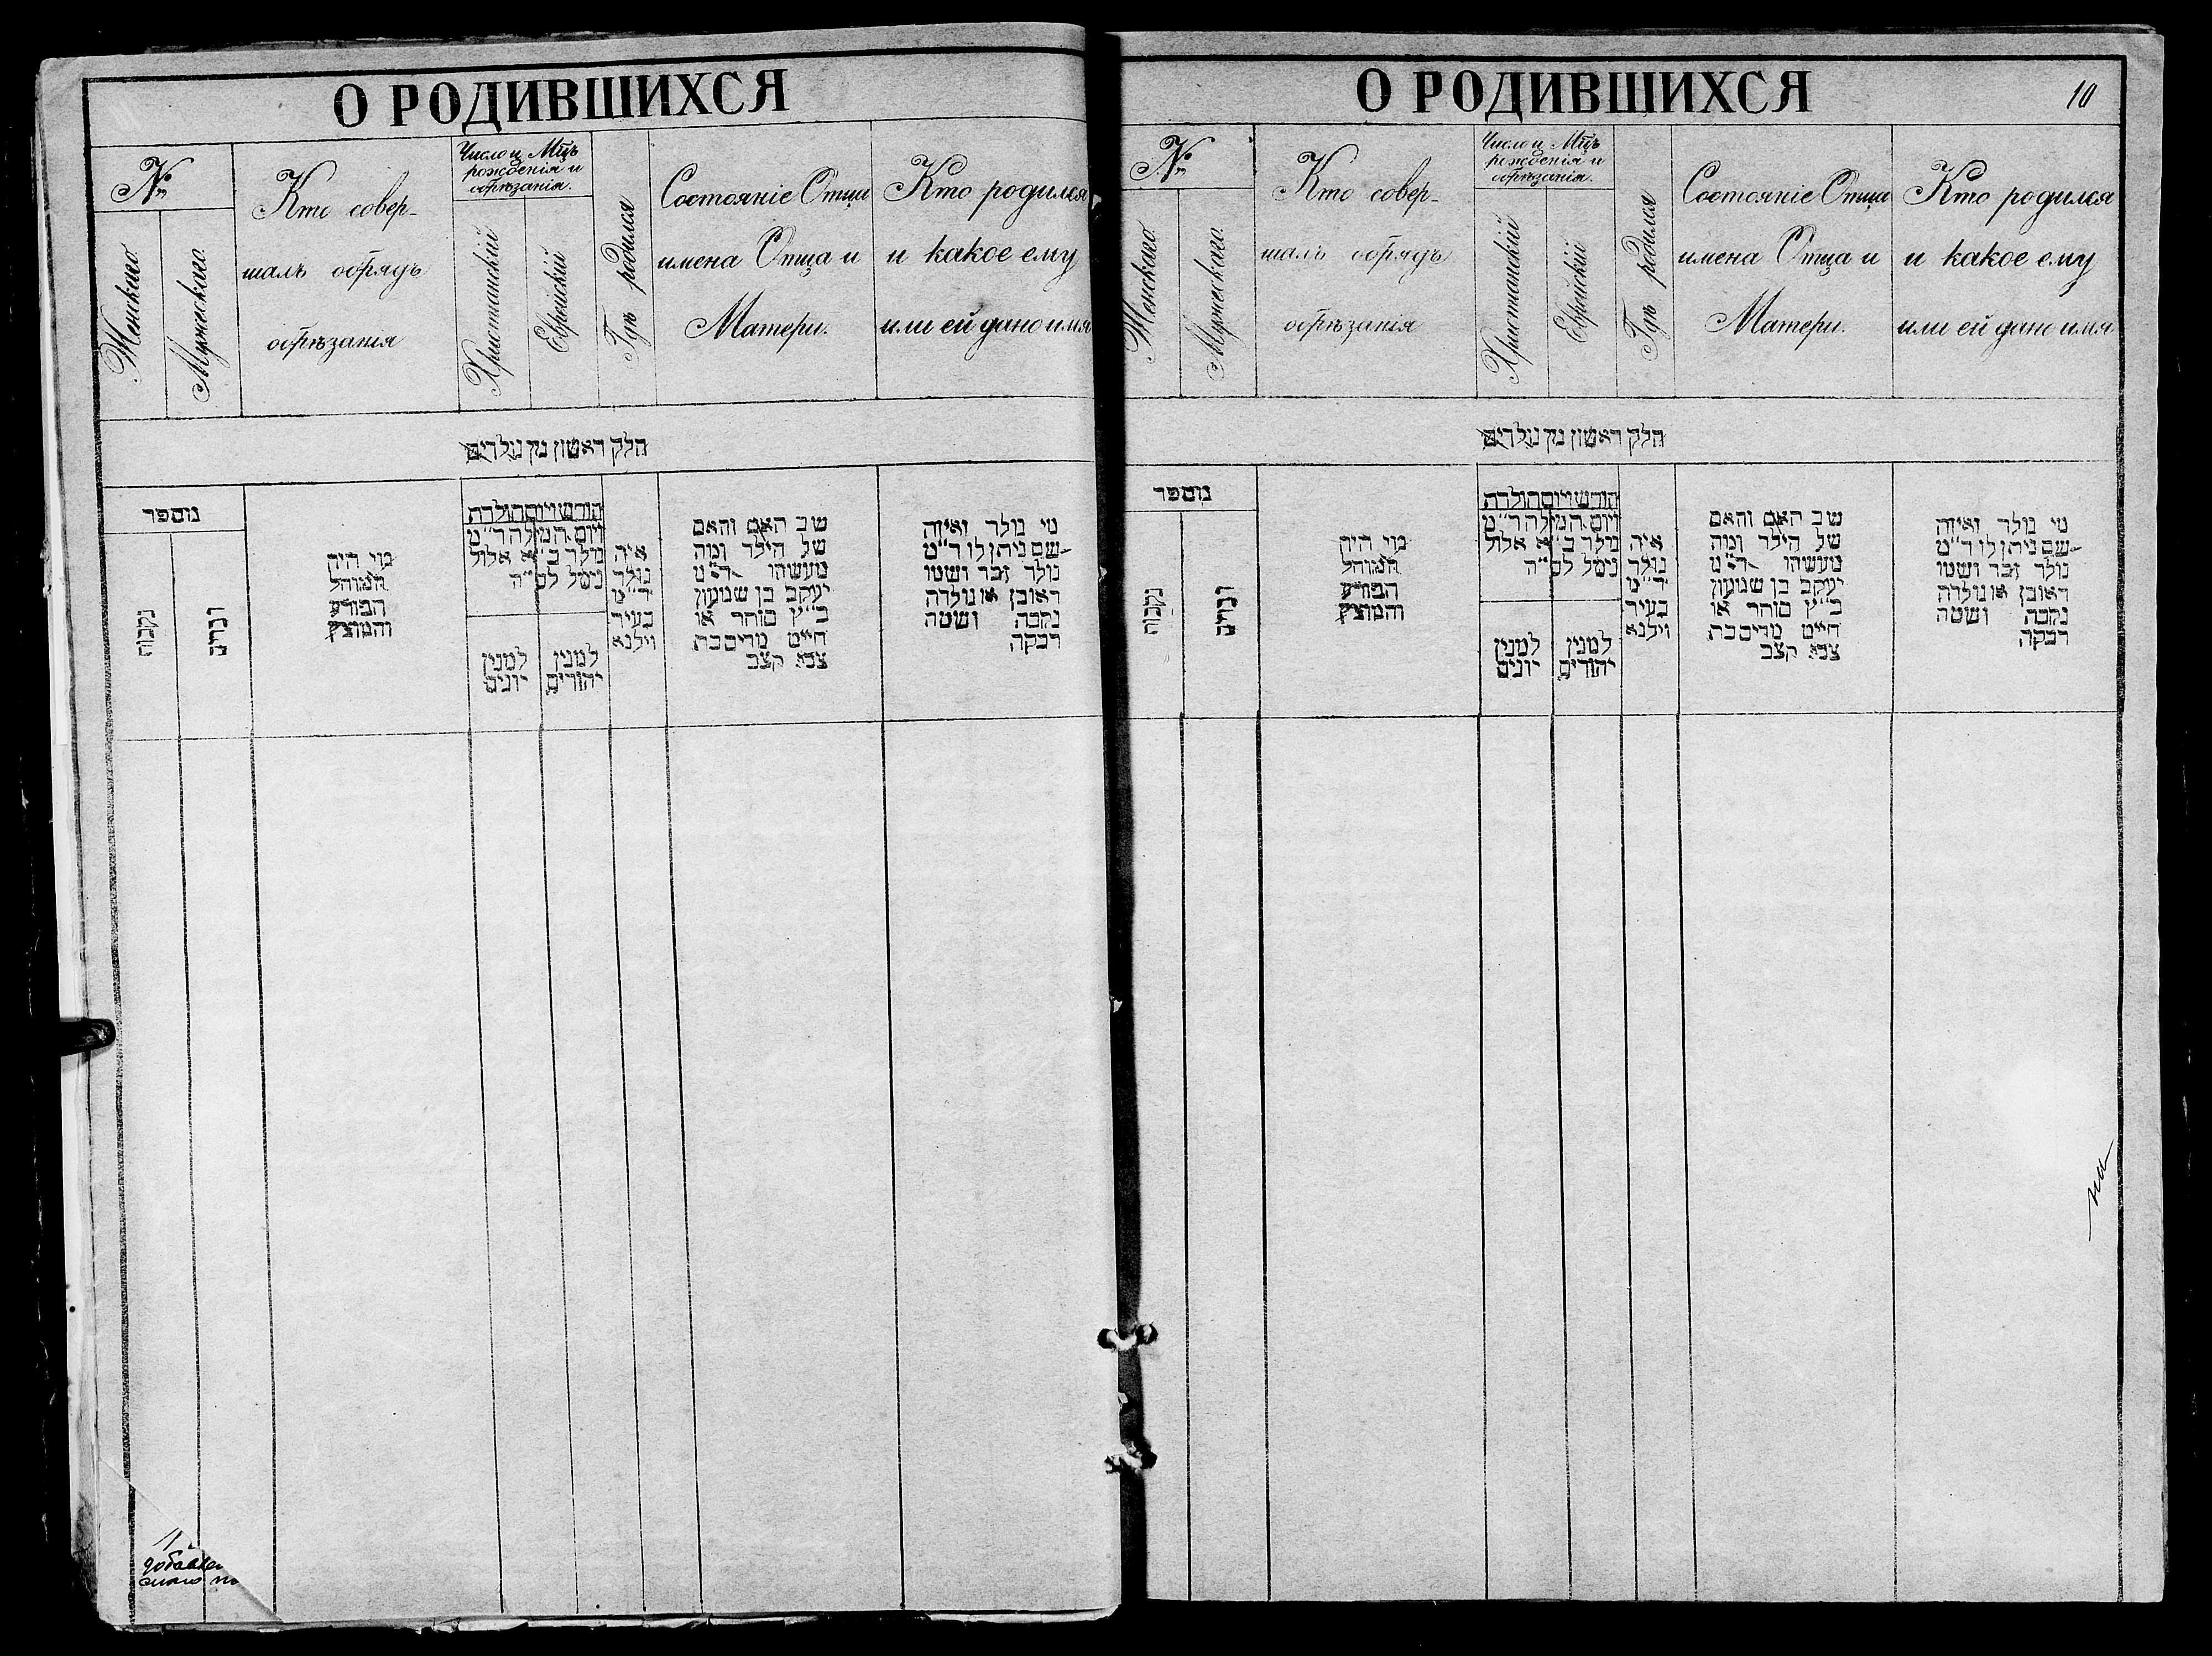 О РОДИВШИХСЯ
№
Женскаго
Мужескаго
Кто совер-
шалъ обрядъ
обрѣзанія
Число и Мцъ
рожденія и
обрѣзанія.
Христіанскій
Еврейскій
Гдѣ родился
Состояніе Отца
имена Отца и
Матери.
Кто родился
и какое ему
или ей дано имя
חלק ראשון מן נולדים
מספר
נקבות
זכרים
מי היה
המוהל
הפורע
והמוצץ
חודש ויום הולדת
ויום המילה ד״מ
נולד כ״א אלול
נימל לס״ה
למנין
יונים
למנין
יהודים
איה
נולד
ד״מ
בעיר
וילנא
שב האם והאם
של הילד ומה
מעשהו ד״מ
יעקב בן שמעון
כ״ץ סוחר או
חייט מרים בת
צבא קצב
מי נולד ואיזה
שם ניתן לו ד״מ
נולד זכר ושמו
ראובן או נולדה
נקבה ושמה
רבקה
О РОДИВШИХСЯ
10
№
Женскаго
Мужескаго
Кто совер-
шалъ обрядъ
обрѣзанія
Число и Мцъ
рожденія и
обрѣзанія.
Христіанскій
Еврейскій
Гдѣ родился
Состояніе Отца
имена Отца и
Матери.
Кто родился
и какое ему
или ей дано имя
חלק ראשון מן נולדים
מספר
נקבות
זכרים
מי היה
המוהל
הפורע
והמוצץ
חודש ויום הולדת
ויום המילה ד״מ
נולד כ״א אלול
נימל לס״ה
למנין
יונים
למנין
יהודים
איה
נולד
ד״מ
בעיר
וילנא
שב האם והאם
של הילד ומה
מעשהו ד״מ
יעקב בן שמעון
כ״ץ סוחר או
חייט מרים בת
צבא קצב
מי נולד ואיזה
שם ניתן לו ד״מ
נולד זכר ושמו
ראובן או נולדה
נקבה ושמה
רבקה